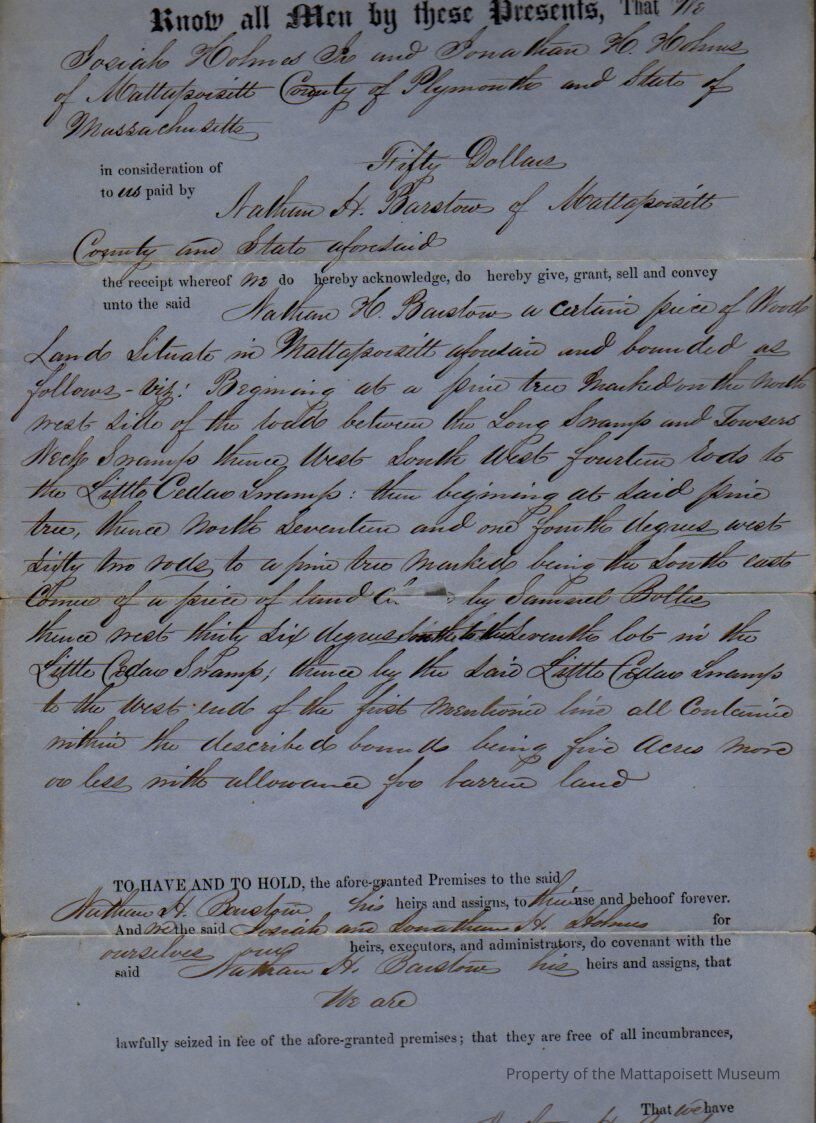 Know all Men by these Presents, That We
Josiah Holmes Jr and Jonathan H. Holmes
of Mattapoisett County of Plymouth and State of
Massachusetts
in consideration of Fifty Dollars
to us paid by
Nathan H. Barstow of Mattapoisett
County and State aforesaid
the receipt whereof we do hereby acknowledge, do hereby give, grant, sell and convey
unto the said Nathan H. Barstow a certain piece of Wood
Land Situate in Mattapoisett aforesaid and bounded as
follows - viz: Begining at a pine tree Marked on the North
west side of the road between the Long Swamp and Towsers
Neck Swamp thence West South West fourteen rods to
the Little Cedar Swamp: then begining at said pine
tree, thence North Seventeen and one fourth degrees west
sixty two rods to a pine tree marked being the South east
Corner of a piece of land by Samuel Bolles
thence west thirty six degrees South to the Seventh lot in the
Little Cedar Swamp; thence by the said Little Cedar Swamp
to the West end of the first mentioned line all Contained
within the described bounds being five Acres more
or less with allowance for barren land
TO HAVE AND TO HOLD, the afore-granted Premises to the said
Nathan H. Barstow his heirs and assigns, to their use and behoof forever.
And we the said Josiah and Jonathan H. Holmes for
ourselves our heirs, executors, and administrators, do covenant with the
said Nathan H. Barstow his heirs and assigns, that
We are
lawfully seized in fee of the afore-granted premises; that they are free of all incumbrances,
Property of the Mattapoisett Museum
That we have